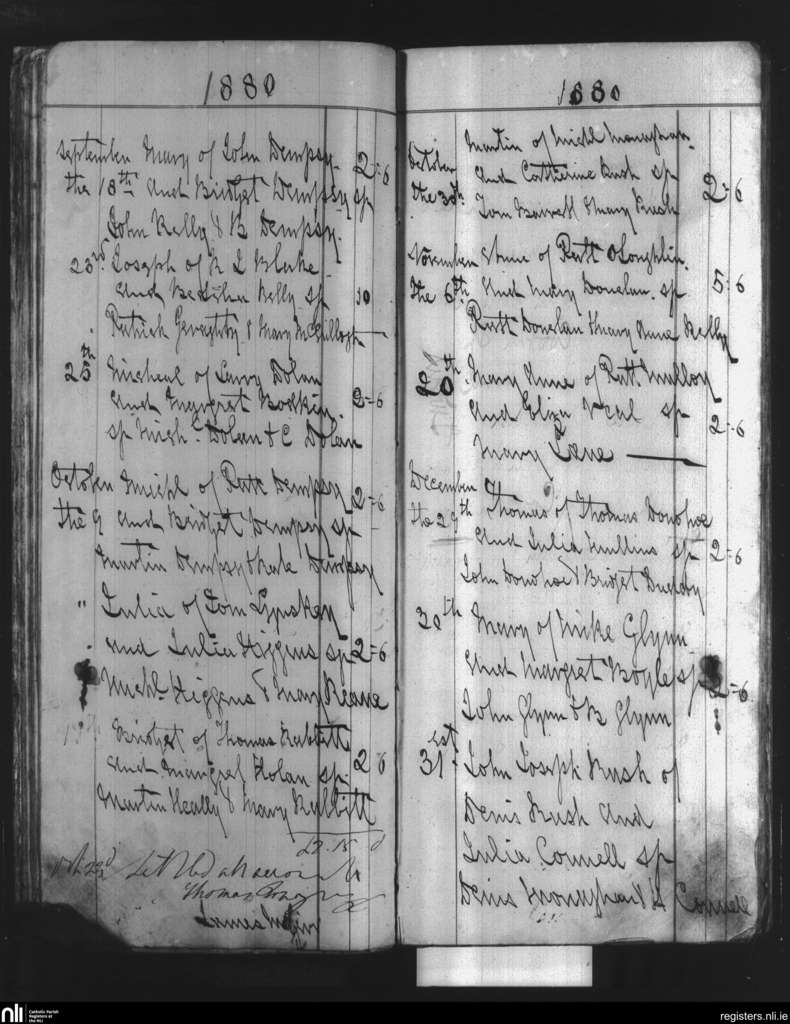 1880
September Mary of John Dempsy 2=6
the 18th And Bridget Dempsy sp
John Kelly & B Dempsy.
23rd Joseph of R J Blake
And Bedelia Kelly sp 10
Patrick Geraghty & Mary McCullagh
25th Micheal of Lawry Dolan
And Margret Bodkin 2=6
sp Mich. Dolan & C Dolan
October Michl of Patk Dempsy 2=6
the 9 And Bridget Dempsy sp
Martin Dempsy & Kate Dempsy
" Julia of Tom Lyskey
" and Julia Higgins sp 2=6
Michl. Higgens & Mary Keane
Bridget of Thomas Rabbitt
And Margret Holan sp 2 6
Martin Healy & Mary Rabbitt
Thomas
James
1880
October Martin of Michl Monaghan
the 30th And Catherine Rush sp 2=6
Tom Barrett & Mary Rush
November Anne of Patt OLoughlin
the 6th And Mary Donelan. sp 5=6
Patt Donelan & Mary Anne Kelly
20th Mary Anne of Patt. Mulloy
And Eliza Veal sp 2=6
Mary Lane
December Thomas of Thomas Donohoe
the 29th And Julia Mullins sp 2=6
John Donohoe & Bridget
30th Mary of Mike Glynn
And Margret Boyle sp 2=6
John Glynn & B Glynn
31st John Joseph Rush of
Denis Rush And
Julia Connell sp
Denis Monaghan & Connell
nli Catholic Parish Registers at the NLI
registers.nli.ie